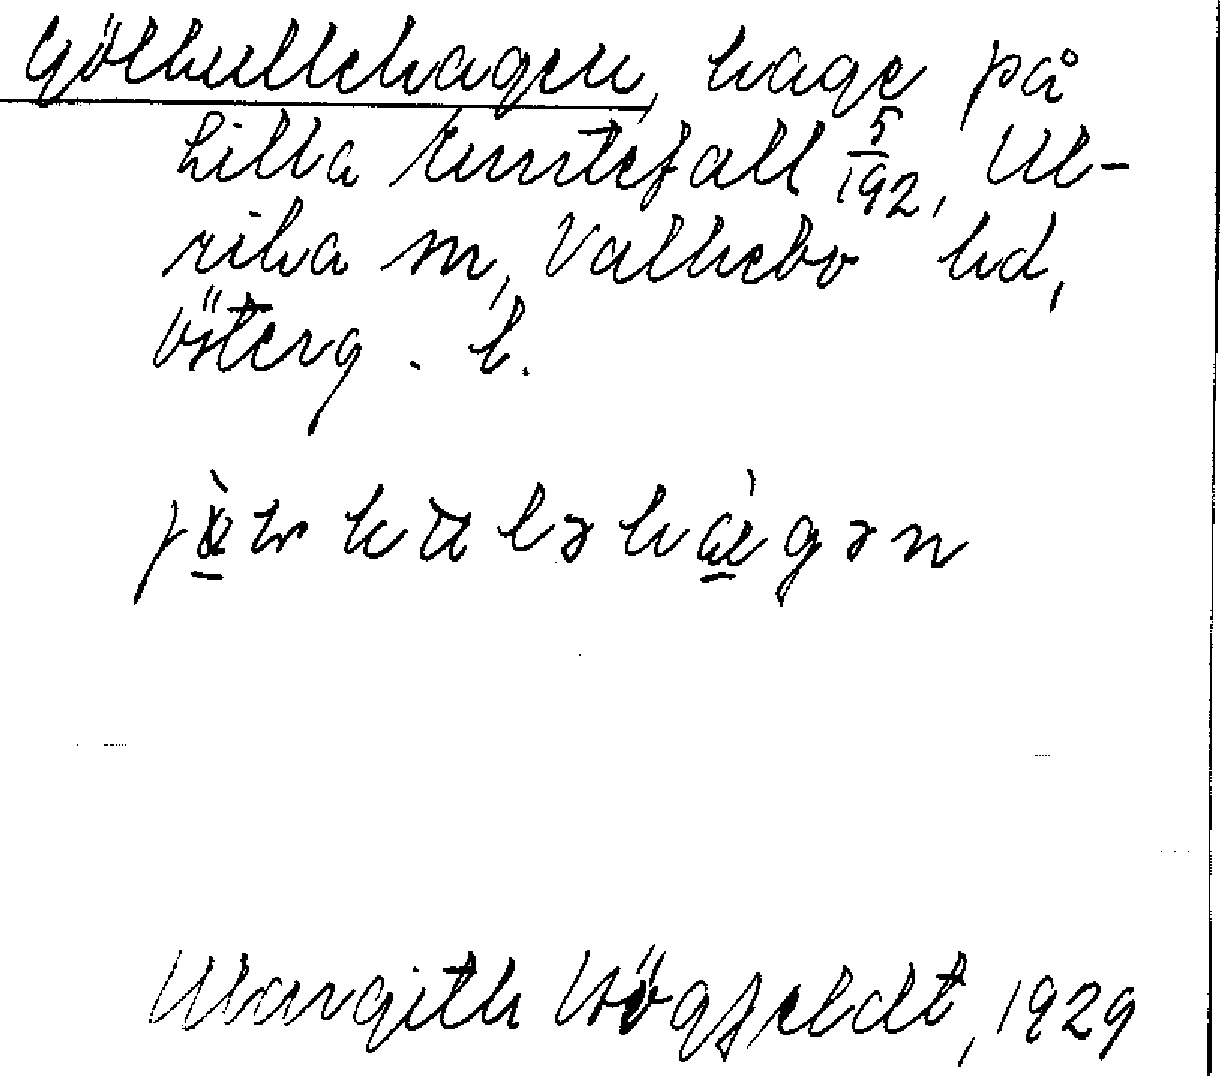 Gölkullehagen, hage på
Lilla Runtefall 5/192, Ul-
rika sn, Valkebo hd,
Österg. l.
Margith Högfeldt, 1929